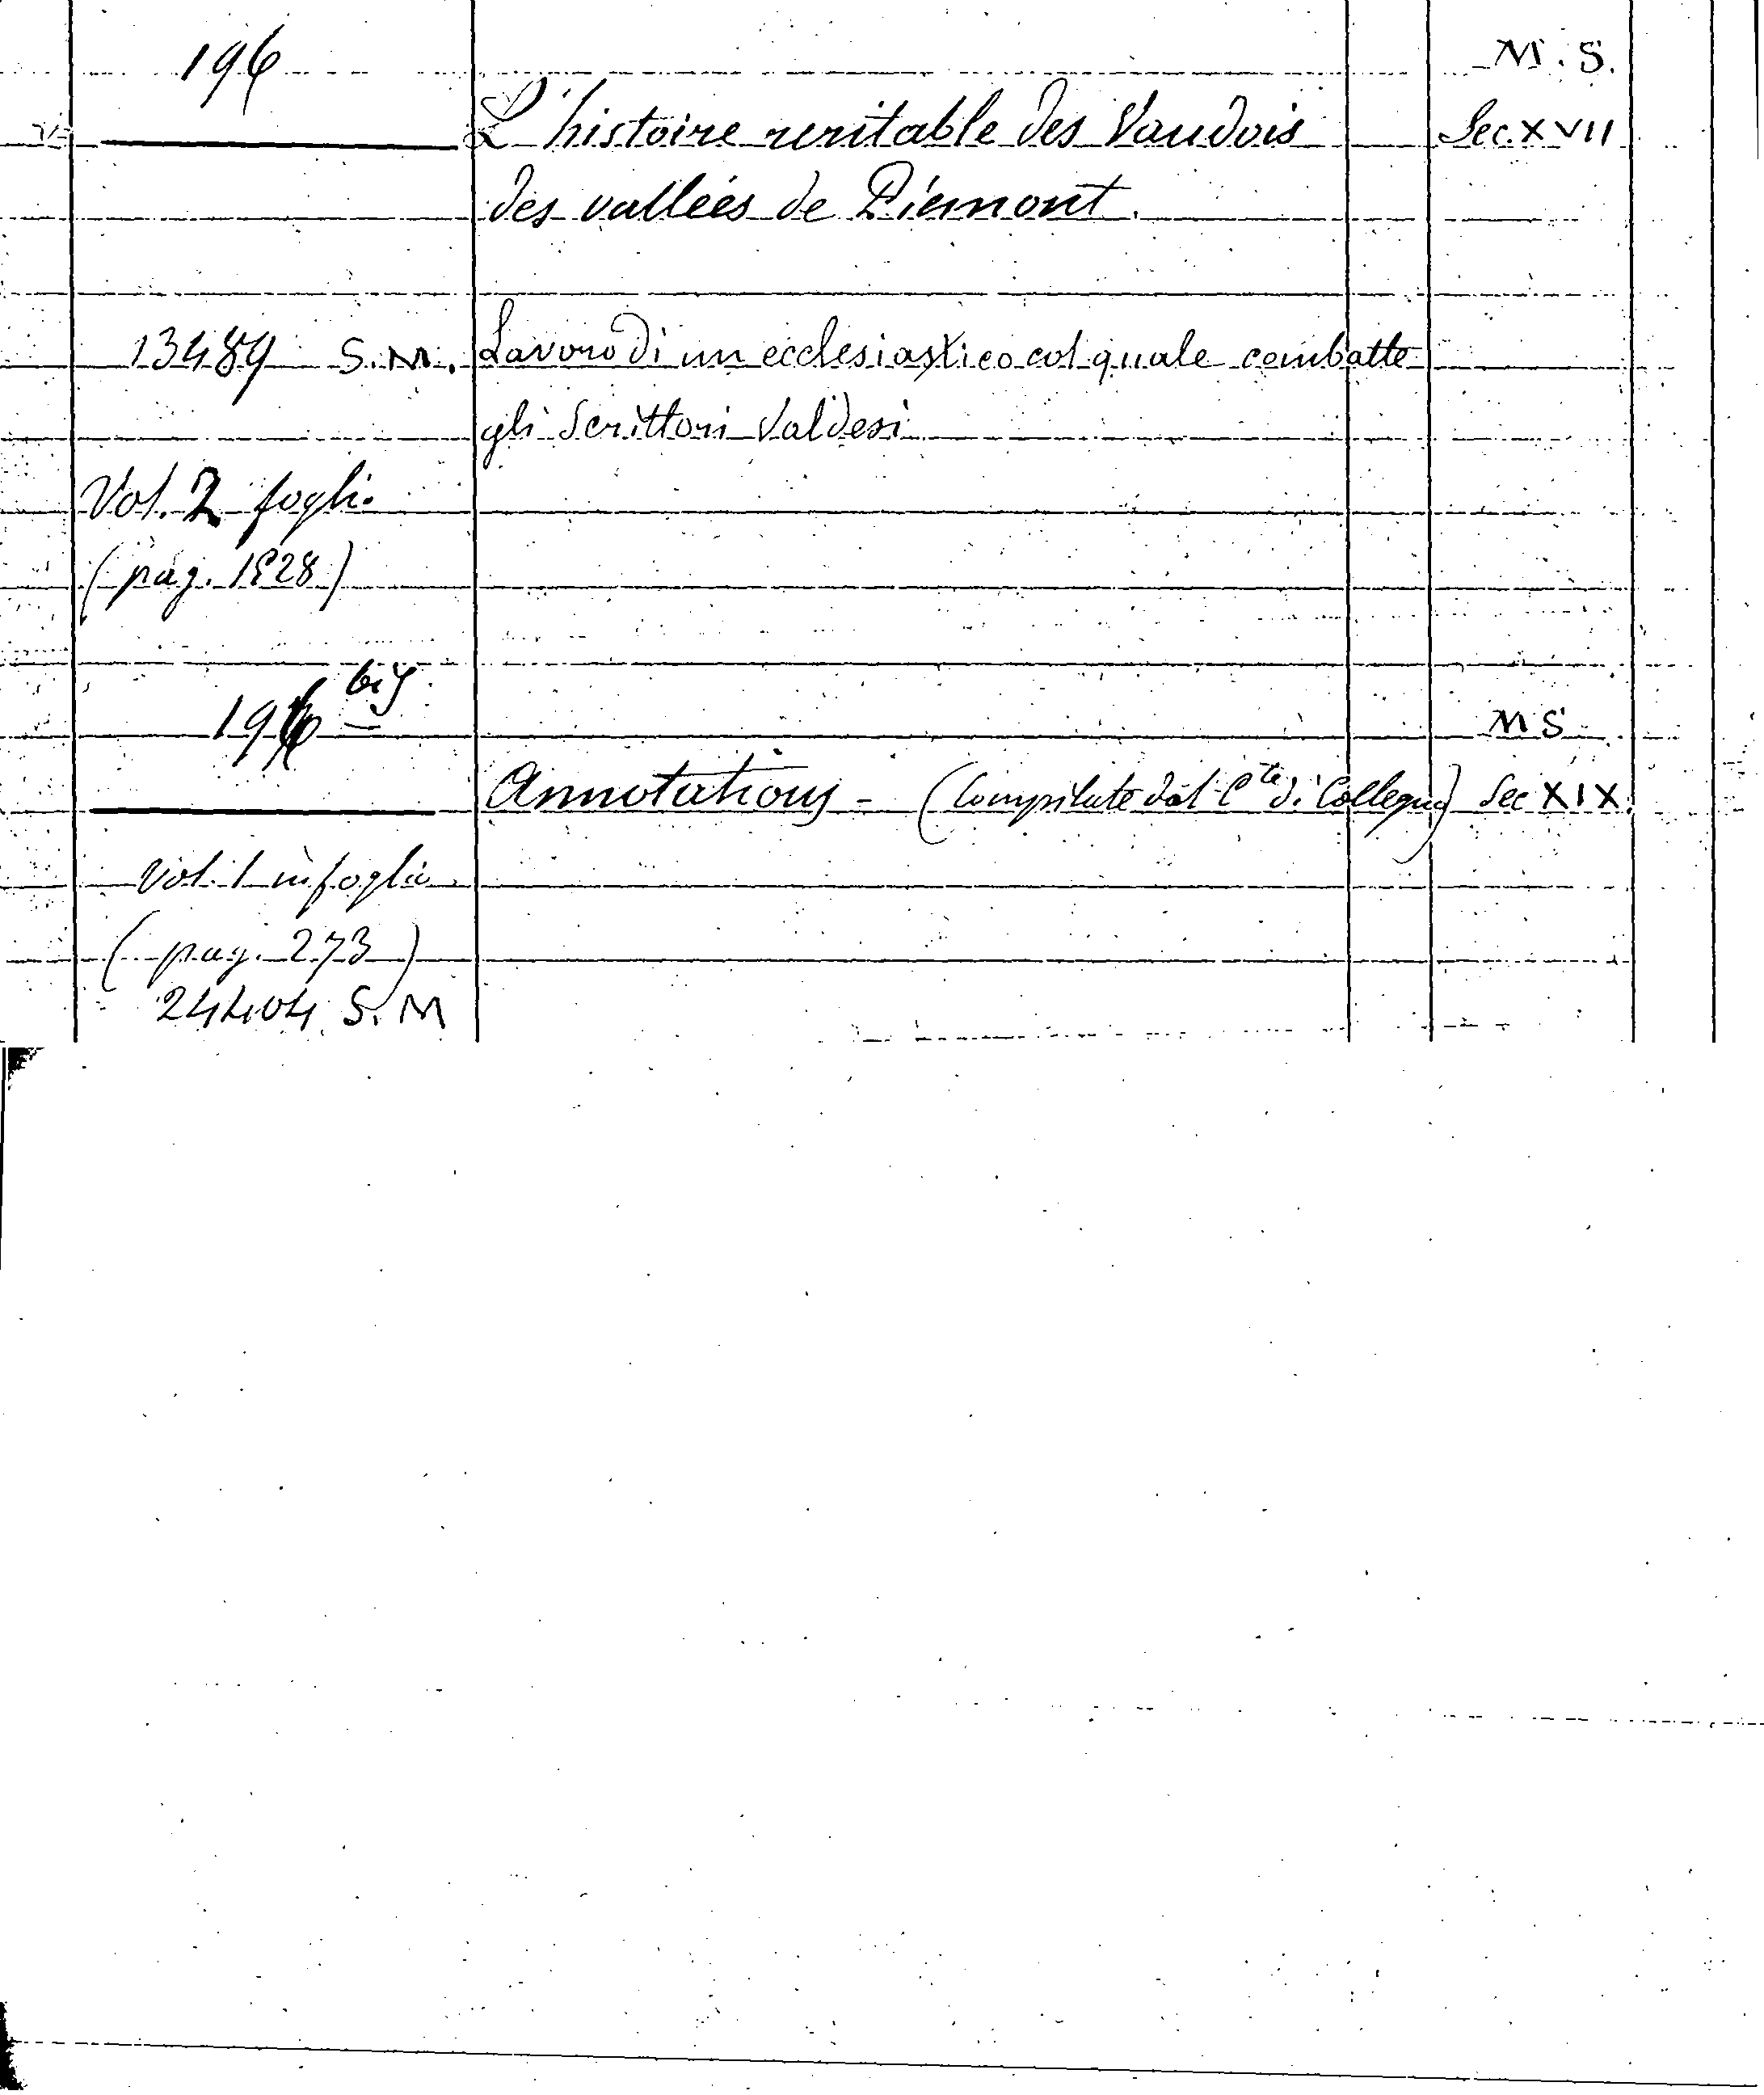 196 M. S.
L'histoire veritable des Vaudois Sec. XVII
des vallées de Piemont.
13489 S.M. Lavoro di un ecclesiastico col quale combatte
gli Scrittori Valdesi
Vol. 2 foglio
(pag. 1828)
196 bis MS
Annotations - (Compilate dal Cte di Collegno) Sec XIX.
Vol. 1 in foglio
(pag. 273)
24404 S.M